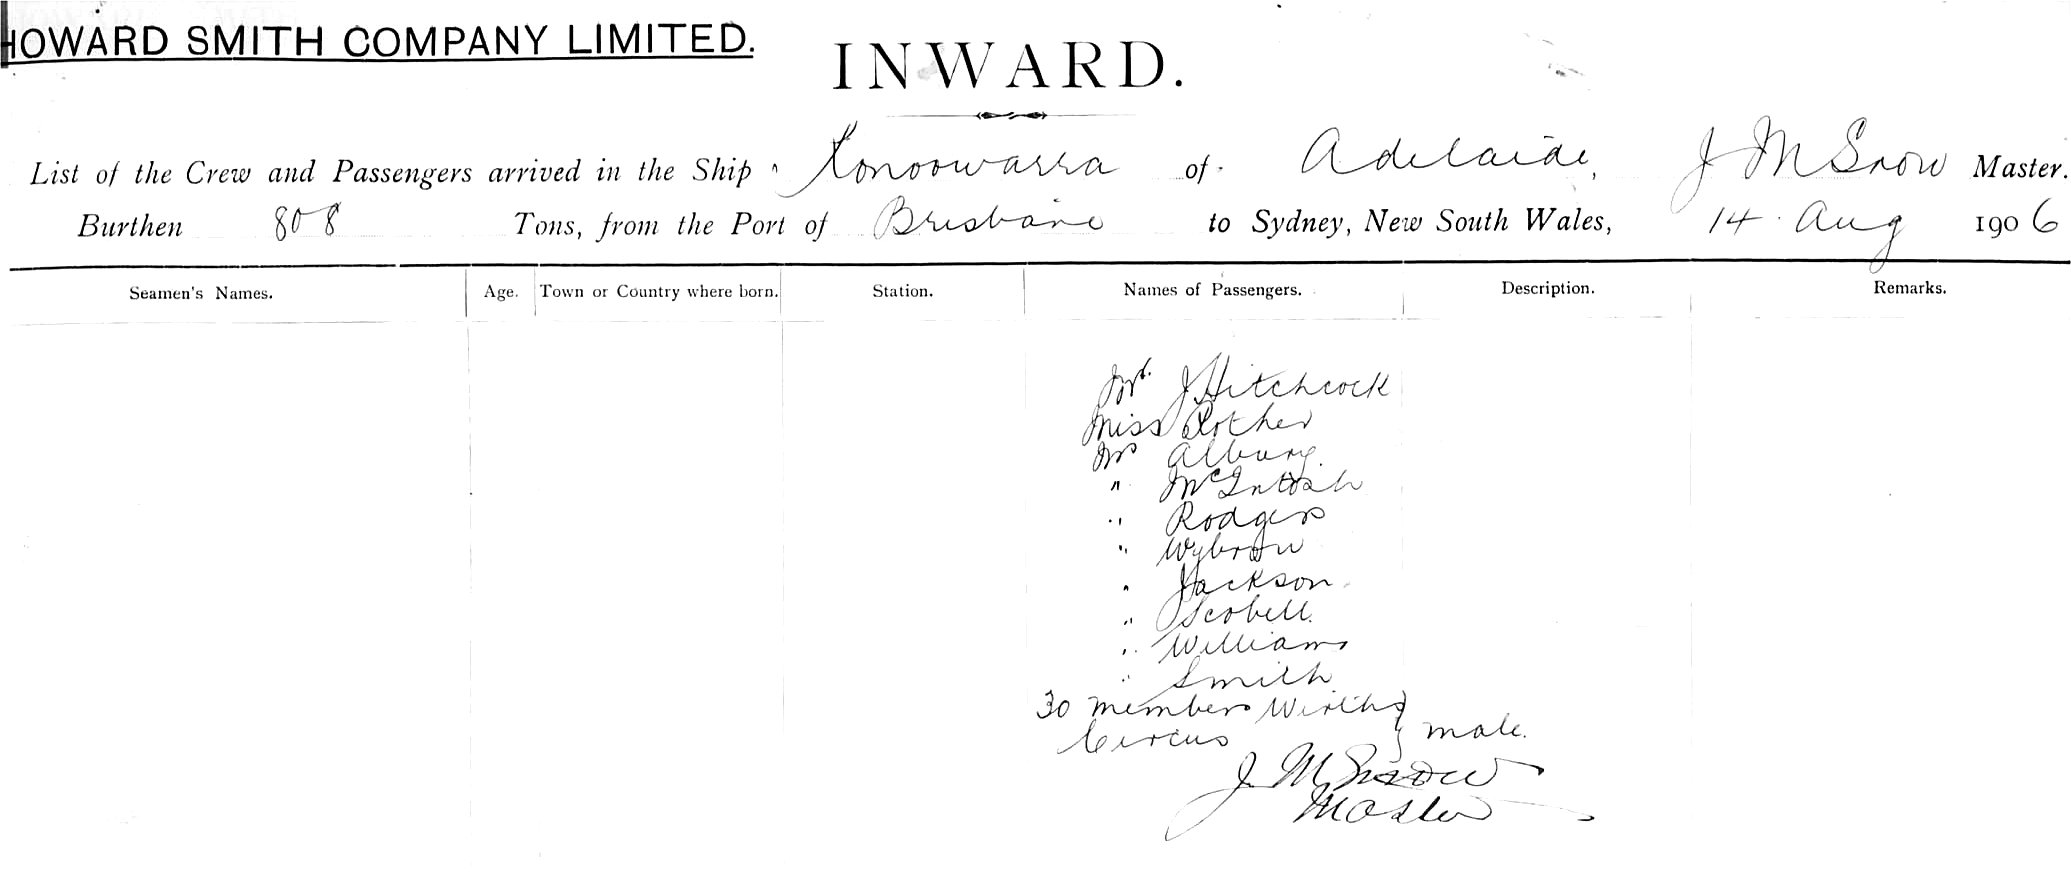 HOWARD SMITH COMPANY LIMITED.
INWARD.
List of the Crew and Passengers arrived in the Ship " Konoowarra of Adelaide, J M Snow Master.
Burthen 808 Tons, from the Port of Brisbane to Sydney, New South Wales, 14 Aug 1906
Seamen's Names. Age. Town or Country where born. Station. Names of Passengers. Description. Remarks.
Mr. J Hitchcock
Miss Rother
Mrs Albury.
" McIntosh
" Rodgers
" Wybrow
" Jackson
" Scobell
" Williams
" Smith
30 members Wirths } male.
Circus
J. M. Snow
Master